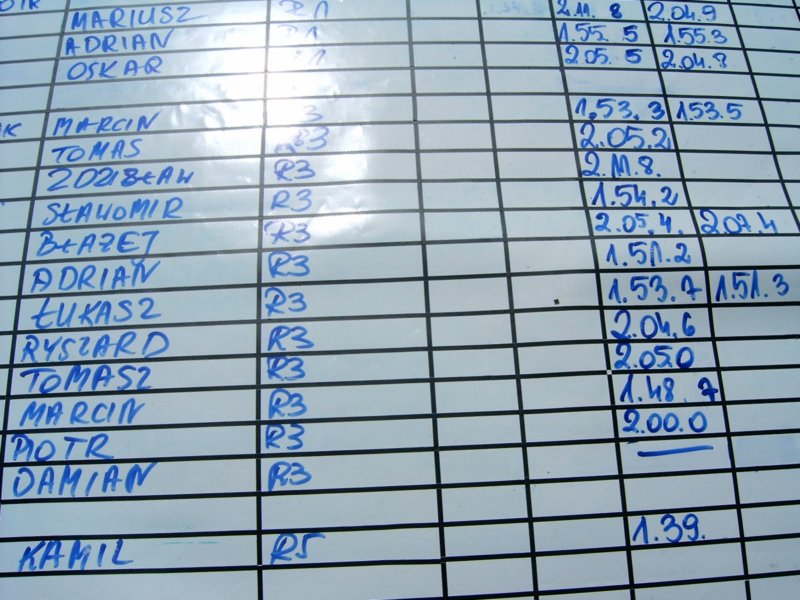 MARIUSZ R1 2.11.8 2.04.9
ADRIAN R1 1.55.5 1.55.3
OSKAR 2.05.5 2.04.8
MARCIN R3 1,53,3 1.53.5
TOMAS R3 2.05.2
ZDZISŁAW R3 2.11.8.
SŁAWOMIR R3 1.54.2
BŁAŻEJ R3 2.05,4. 2.07.4
ADRIAN R3 1.51.2
ŁUKASZ R3 1.53.7 1.51.3
RYSZARD R3 2.04.6
TOMASZ R3 2.05.0
MARCIN R3 1.48.7
PIOTR R3 2.00.0
DAMIAN R3
KAMIL R5 1.39.